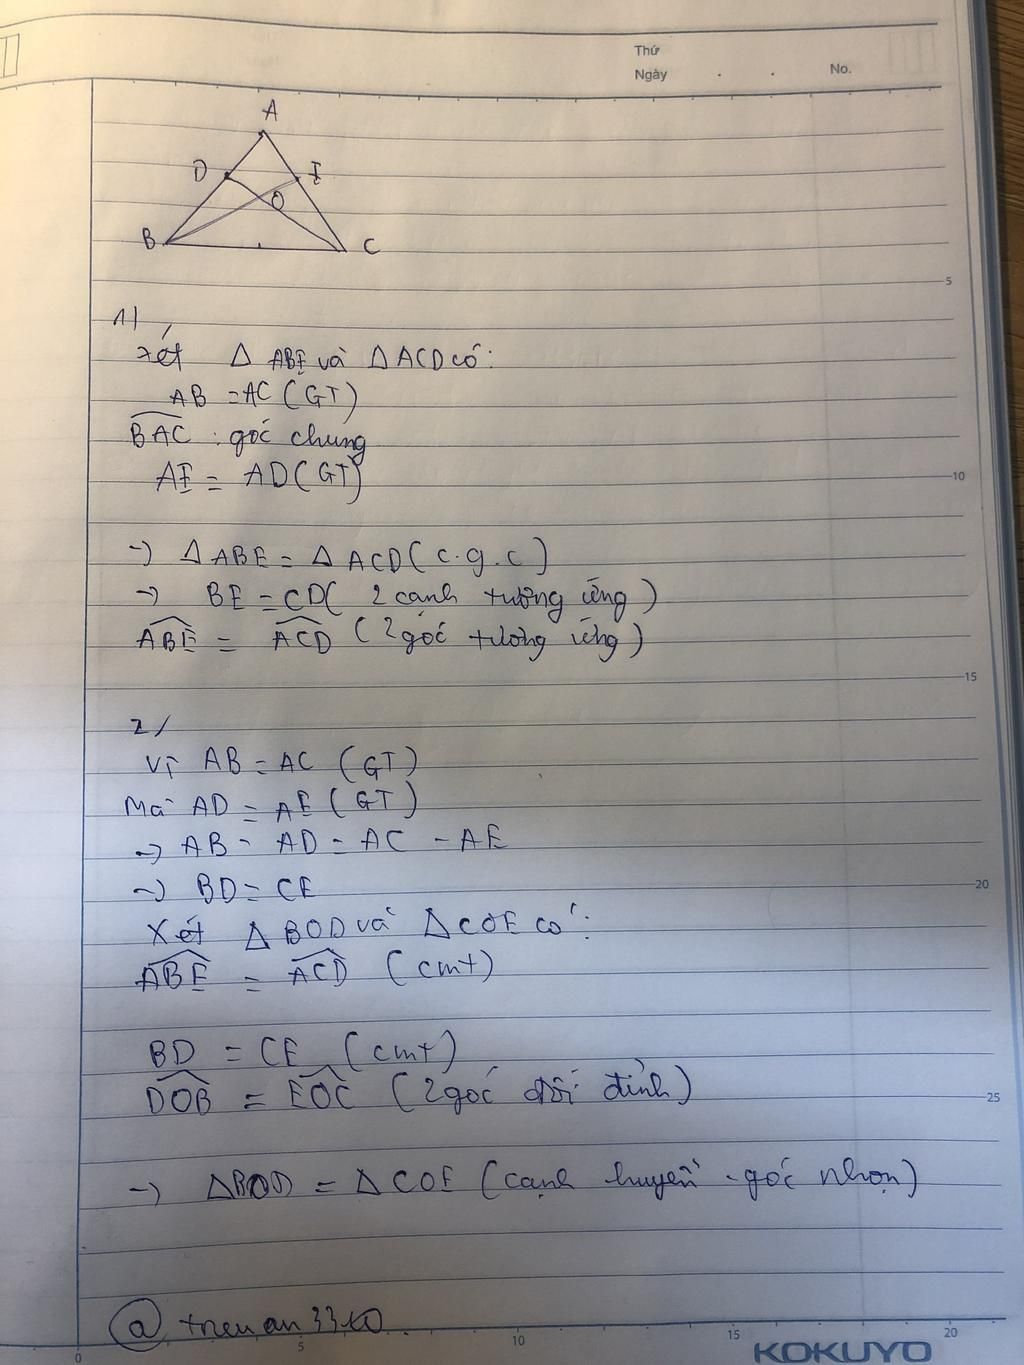 Thứ
Ngày . . No.
A
D E
O
B C
1)
Xét Δ ABE và Δ ACD có:
AB = AC (GT)
BAC : góc chung
AE = AD (GT)
→ Δ ABE = Δ ACD (c.g.c)
→ BE = CD ( 2 cạnh tương ứng )
ABE = ACD ( 2 góc tương ứng )
2/
Vì AB = AC (GT)
Mà AD = AE (GT)
→ AB - AD = AC - AE
→ BD = CE
Xét Δ BOD và Δ COE có:
ABE = ACD (cmt)
BD = CE (cmt)
DOB = EOC ( 2 góc đối đỉnh )
→ ΔBOD = ΔCOE ( cạnh huyền - góc nhọn )
5
10
15
20
25
0 5 10 15 20
KOKUYO